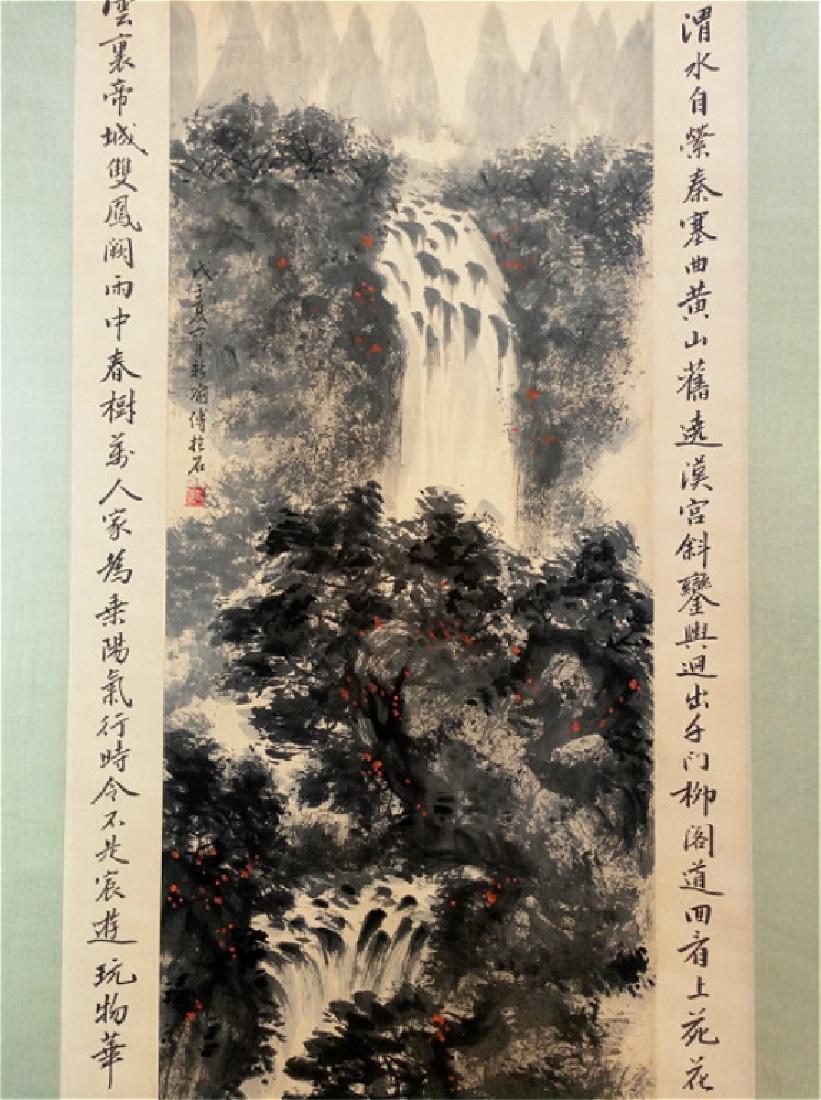 渭水自縈秦塞曲黄山舊遶漢宮斜鑾輿迥出千门柳阁道回看上苑花
雲裏帝城雙鳳闕雨中春樹萬人家為乘陽氣行時令不是宸遊玩物華
戊子夏六月新喻傅抱石